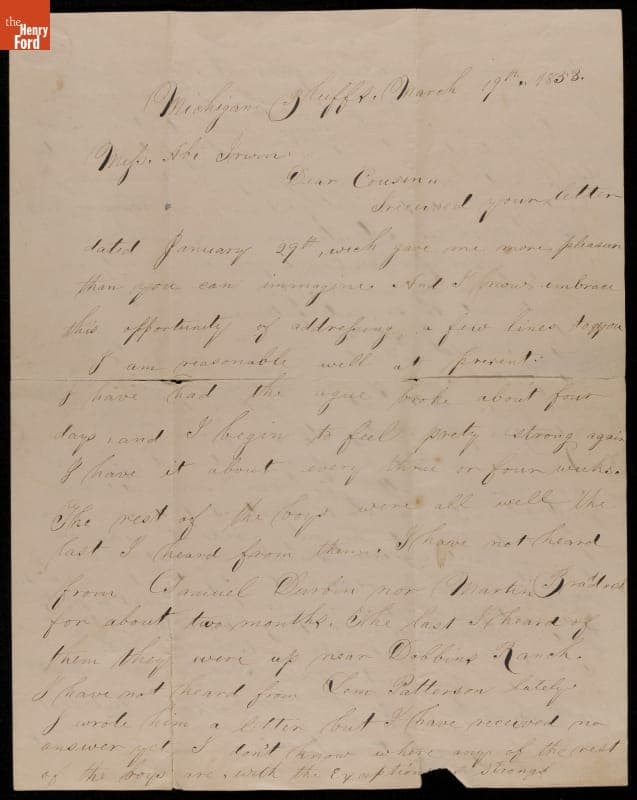 the
Henry
Ford
Michigan Bluffs. March 19th. 1853.
Miss. Abi Irwin
Dear Cousin
I received your letter
dated January 29th, wich gave me more pleasur
than you can immagine. And I now embrace
this opportunity of addressing a few lines to you
I am reasonable well at present.
I have had the ague broke about four
days, and I begin to feel prety strong again
I have it about every three or four weeks.
The rest of the boys were all well the
last I heard from them. I have not heard
from Samuel Durbin nor Martin
for about two months. The last I heard of
them they were up near Dobbins Ranch.
I have not heard from Lom Patterson lately.
I wrote him a letter but I have received no
answer yet I don't know where any of the rest
of the boys are. with the exception strongs